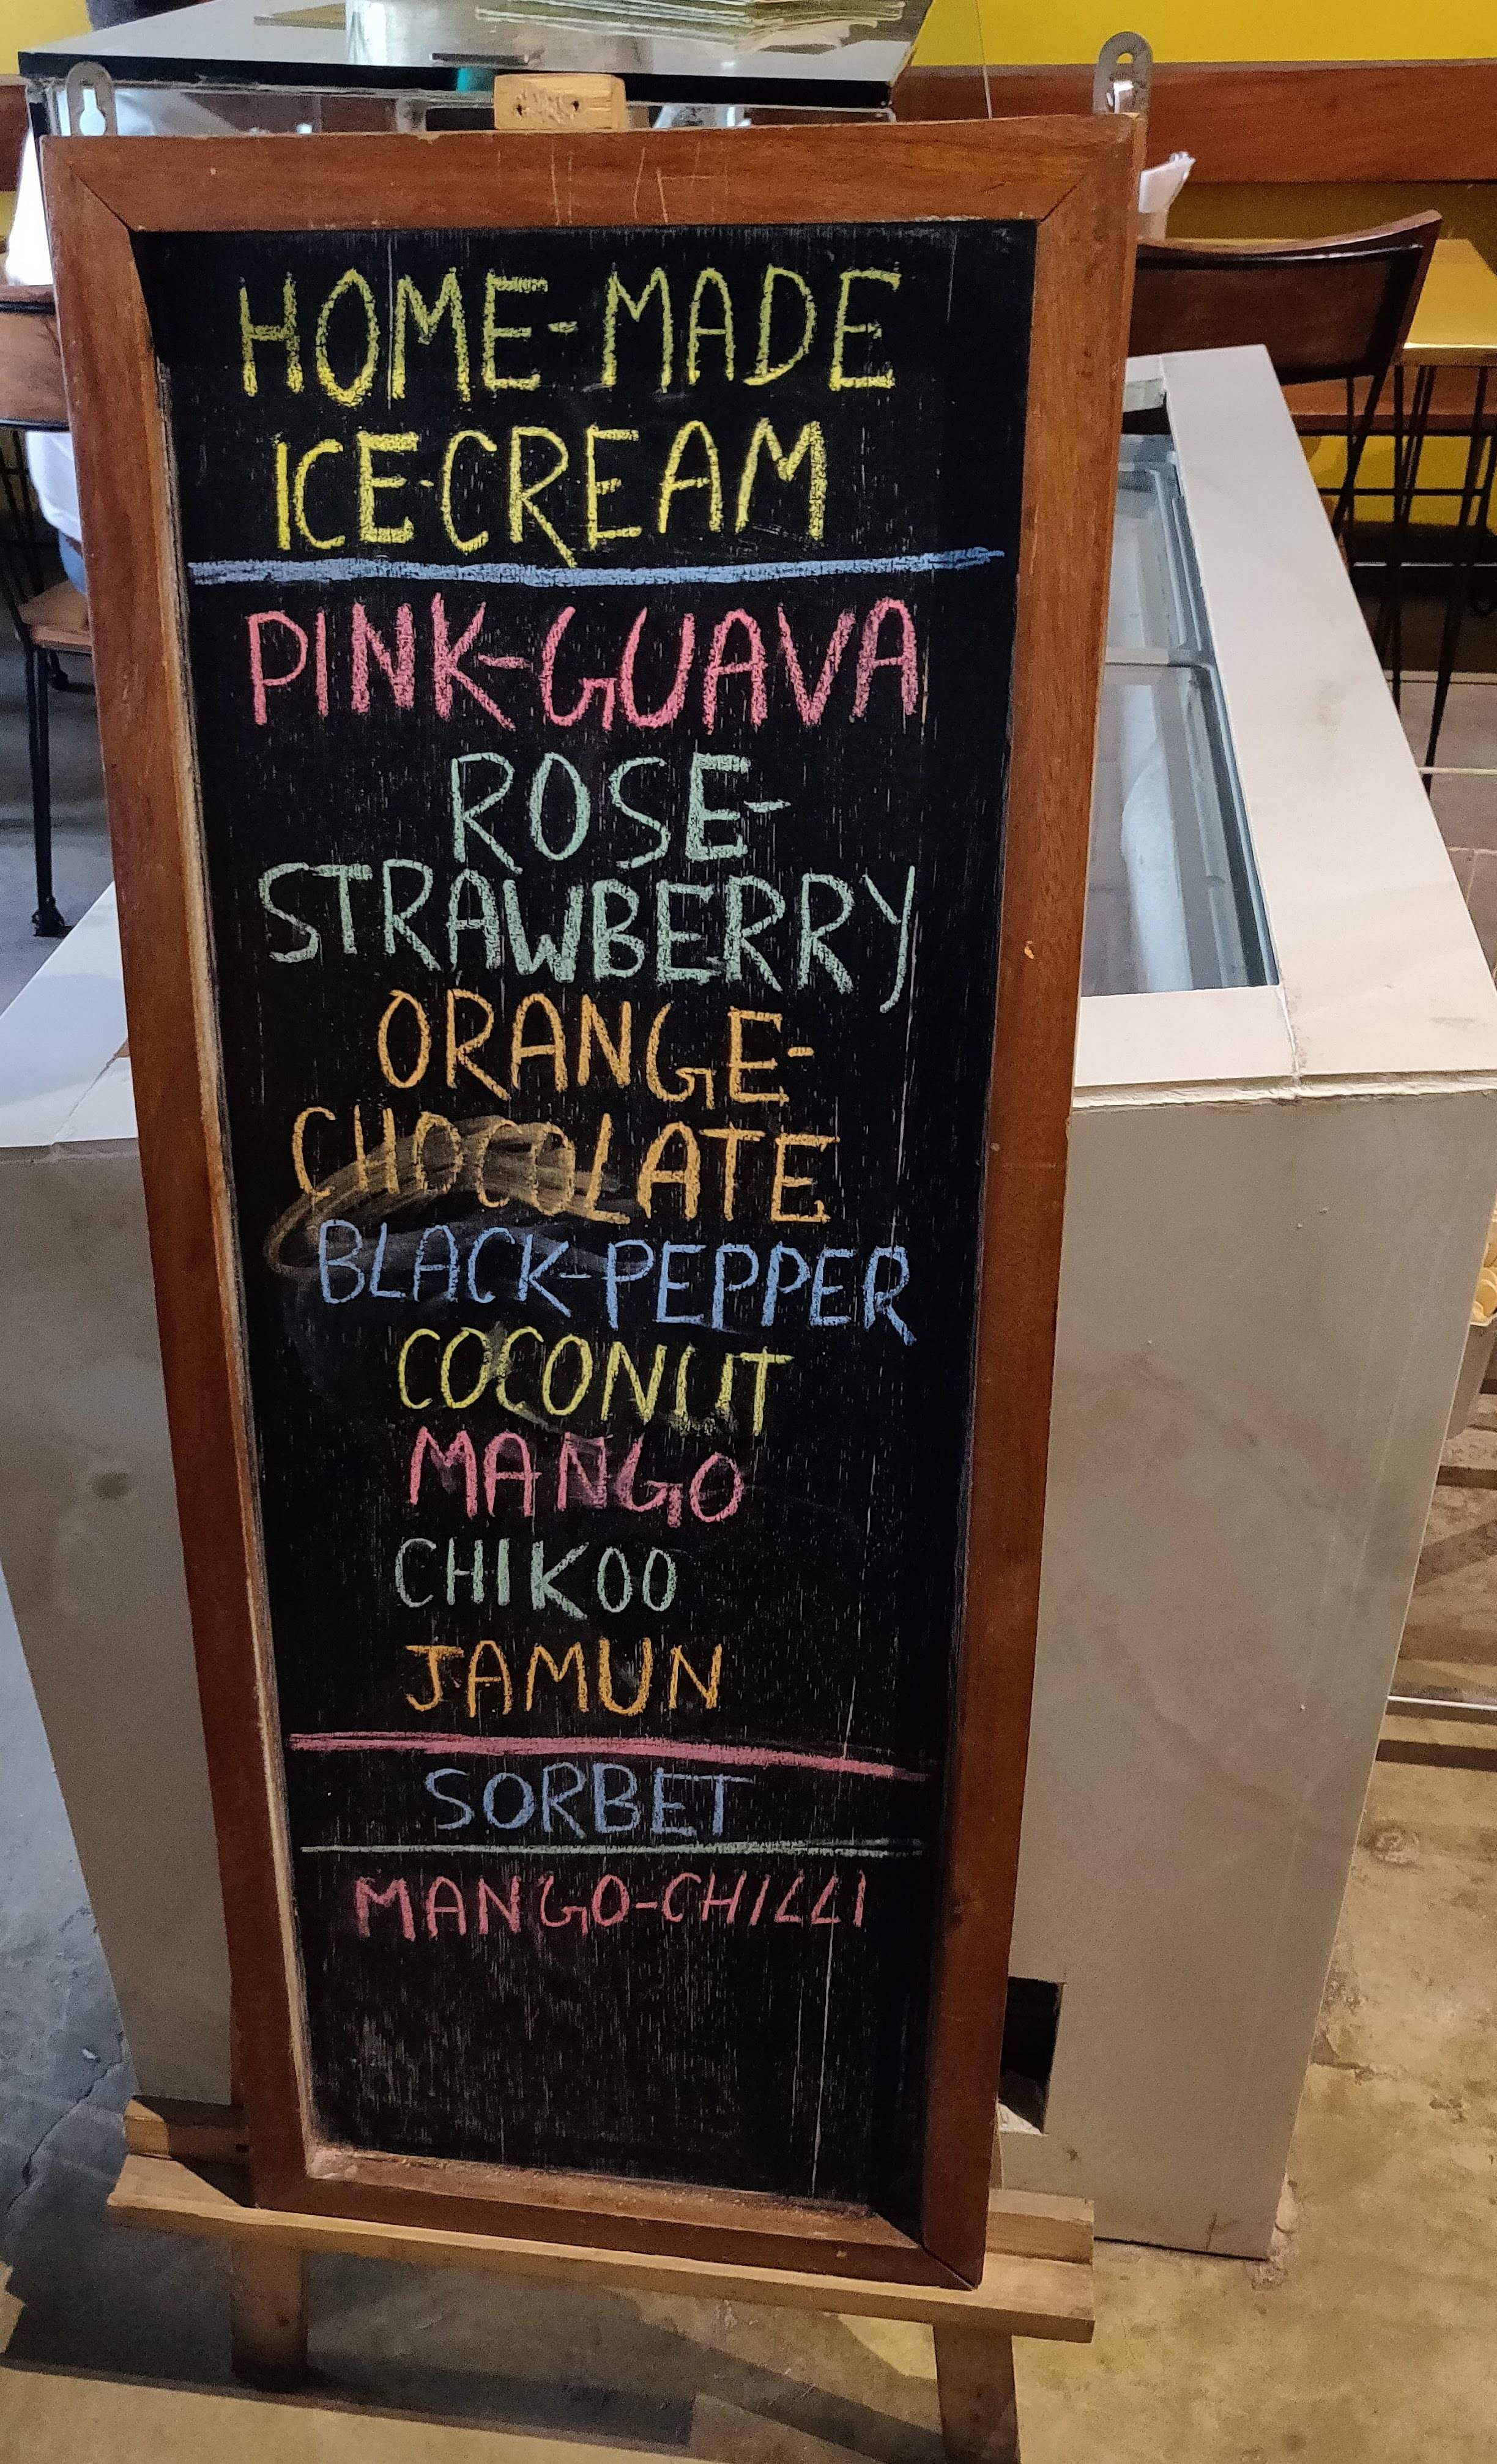 HOME-MADE
ICE-CREAM
PINK-GUAVA
ROSE-
STRAWBERRY
ORANGE-
CHOCOLATE
BLACK-PEPPER
COCONUT
MANGO
CHIKOO
JAMUN
SORBET
MANGO-CHILLI